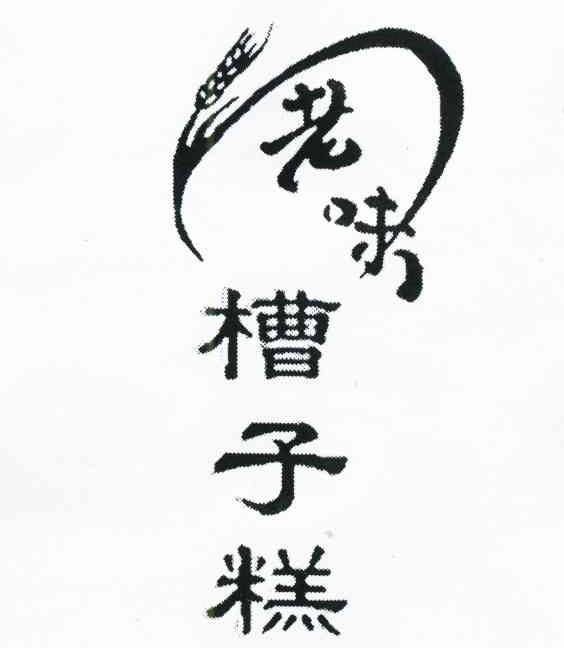 老味
槽子糕